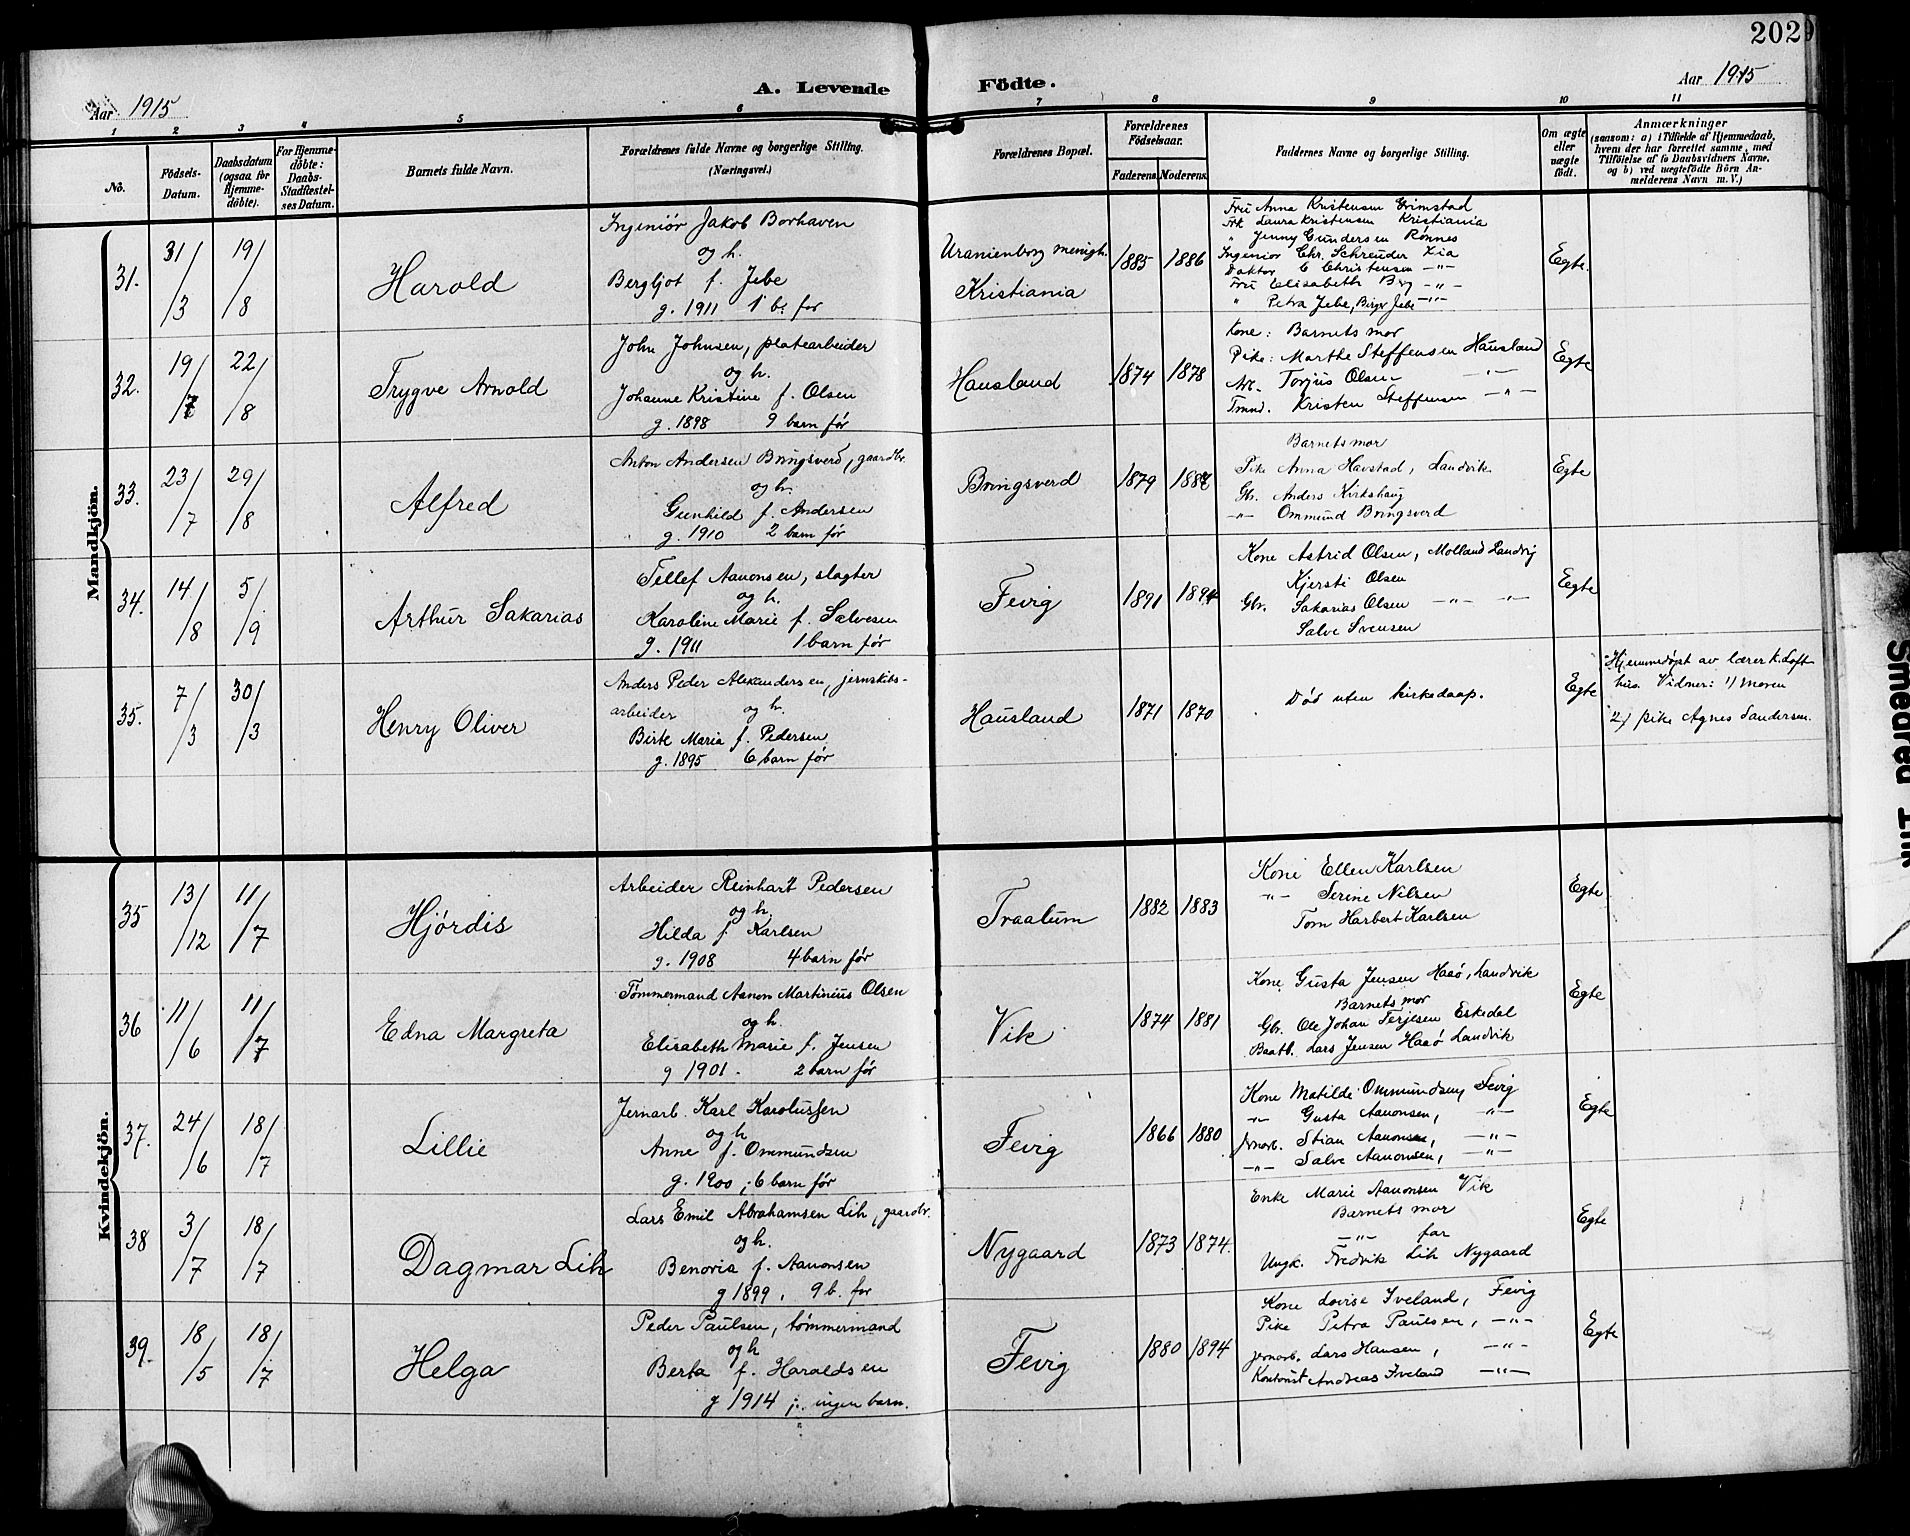 202
Aar 1915
A. Levende Födte.
Aar 1915
1 2 3 4 5 6 7 8 9 10 11
No.
Födsels-
Datum.
Daabsdatum
(ogsaa for
Hjemme-
döbte).
For Hjemme-
döbte:
Daabs-
Stadfæstel-
ses Datum.
Barnets fulde Navn.
Forældrenes fulde Navne og borgerlige Stilling.
(Næringsvei.)
Forældrenes Bopæl.
Forældrenes
Födselsaar.
Faderens. Moderens.
Faddernes Navne og borgerlige Stilling.
Om ægte
eller
uægte
födt.
Anmærkninger
(saasom: a) i Tilfælde af Hjemmedaab,
hvem der har forrettet samme, med
Tilföielse af to Daabsvidners Navne,
og b) ved uægtefödte Börn An-
melderens Navn m. V.)
Mandkjön.
31.
31/3
19/8
Harold
Ingeniør Jakob Borhaven
og h.
Bergljot f. Jebe
g. 1911 1 b. før
Uranienborg menigh.
Kristiania
1885 1886
Fru Anna Kristensen Grimstad
Frk Laura Kristensen Kristiania
" Jenny Gundersen Rønnes
Ingeniør Chr. Schreuder Kia
Doktor C Christensen -"-
Fru Elisabeth Berg -"-
" Petra Jebe, Birger Jebe -"-
Egte.
32.
19/7
22/8
Trygve Arnold
John Johnsen, platearbeider
og h.
Johanne Kristine f. Olsen
g. 1898 9 barn før
Hausland
1874 1878
Kone: Barnets mor
Pike: Marthe Steffensen Hausland
Arb. Torjus Olsen -"-
Tmnd. Kristen Steffensen -"-
Egte
33.
23/7
29/8
Alfred
Anton Andersen Bringsverd, gaardbr.
og h.
Gunhild f. Andersen
g. 1910 2 barn før
Bringsverd
1879
Barnets mor
Pike Anna Havstad, Landvik
Gb. Anders Kirkehaug
-"- Ommund Bringsverd
Egte
34.
14/8
5/9
Arthur Sakarias
Tellef Aanonsen, slagter
og h.
Karoline Marie f. Salvesen
g. 1911 1 barn før
Fevig
1891 1894
Kone Astrid Olsen, Molland Landvig
Kjersti Olsen
Gbr. Sakarias Olsen -"- -"-
Salve Svensen
Egte
35.
7/3
30/3
Henry Oliver
Anders Peder Alexandersen, jernskibs-
arbeider og h.
Birte Maria f. Pedersen
g. 1895 6 barn før
Hausland
1871 1870
Død uten kirkedaap.
Egte
Hjemmedøpt av lærer K. Loft-
hus. Vidner: 1) Moren
2) pike Agnes Sandersen.
Kvindekjön.
35
13/12
11/7
Hjørdis
Arbeider Reinhart Pedersen
og h
Hilda f Karlsen
g. 1908 4 barn før
Traalum
1882 1883
Kone Ellen Karlsen
-"- Serine Nilsen
Tom Harbert Karlsen
Egte
36
11/6
11/7
Edna Margreta
Tømmermand Aanon Martinius Olsen
og h.
Elisabeth Marie f. Jensen
g 1901. 2 barn før
Vik
1874 1881
Kone Gusta Jensen Haaø, Landvik
Barnets mor
Gb. Ole Johan Terjesen Eskedal
Baatb. Lars Jensen Haaø Landvik
Egte
37.
24/6
18/7
Lillie
Jernarb. Karl Karolussen
og h
Anne f. Ommundsen
g. 1900; 6 barn før
Fevig
1866 1880
Kone Matilde Ommundsen, Fevig
-"- Gusta Aanonsen, -"-
Jernarb. Stian Aanonsen, -"-
-"- Salve Aanonsen, -"-
Egte
38
3/7
18/7
Dagmar Lih
Lars Emil Abrahamsen Lih, gaardbr.
og h.
Benovia f. Aanonsen
g 1899, 9 b. før
Nygaard
1873 1874.
Enke Marie Aanonsen Vik
Barnets mor
-"- far
Ungk. Fredrik Lih Nygaard
Egte
39.
18/5
18/7
Helga
Peder Paulsen, tømmermand
og h
Berta f. Haraldsen
g 1914; ingen barn.
Fevig
1880 1894
Kone Lovise Iveland, Fevig
Pike Petra Paulsen, -"-
Jernarb. Lars Hansen, -"-
Kontorist Andreas Iveland -"-
Egte
Smeared Ink